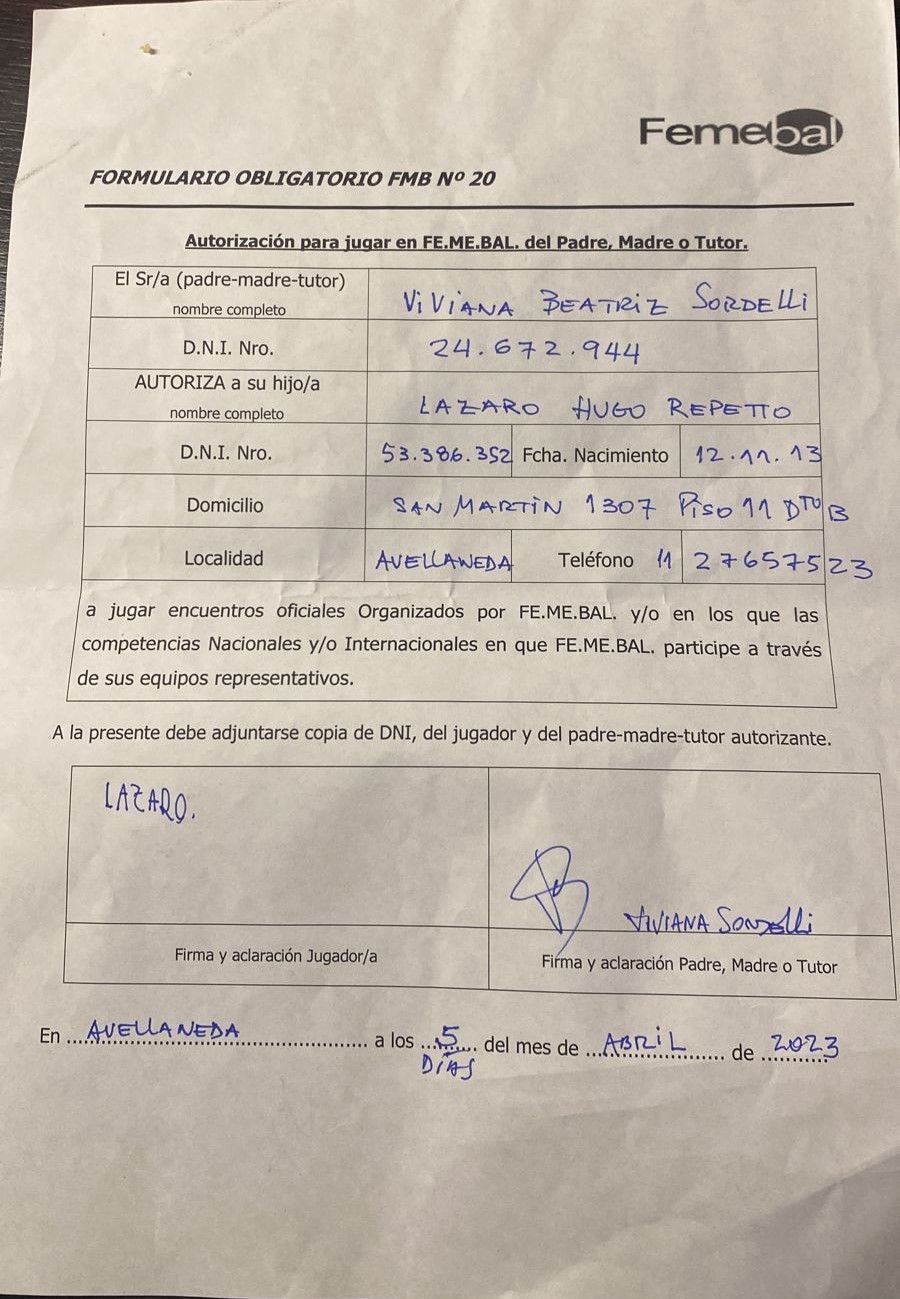 Femebal
FORMULARIO OBLIGATORIO FMB Nº 20
Autorización para jugar en FE.ME.BAL. del Padre, Madre o Tutor.
El Sr/a (padre-madre-tutor)
nombre completo
ViViANA BEATRiZ SORDELLi
D.N.I. Nro.
24.672.944
AUTORIZA a su hijo/a
nombre completo
LAZARO HUGO REPETTO
D.N.I. Nro.
53.386.352
Fcha. Nacimiento
12.11.13
Domicilio
SAN MARTiN 1307 PiSO 11 DTO B
Localidad
AVELLANEDA
Teléfono 11 27657523
a jugar encuentros oficiales Organizados por FE.ME.BAL. y/o en los que las
competencias Nacionales y/o Internacionales en que FE.ME.BAL. participe a través
de sus equipos representativos.
A la presente debe adjuntarse copia de DNI, del jugador y del padre-madre-tutor autorizante.
LAZARO.
ViViANA SORDELLi
Firma y aclaración Jugador/a
Firma y aclaración Padre, Madre o Tutor
En AVELLANEDA a los 5 del mes de ABRiL de 2023
DÍAS